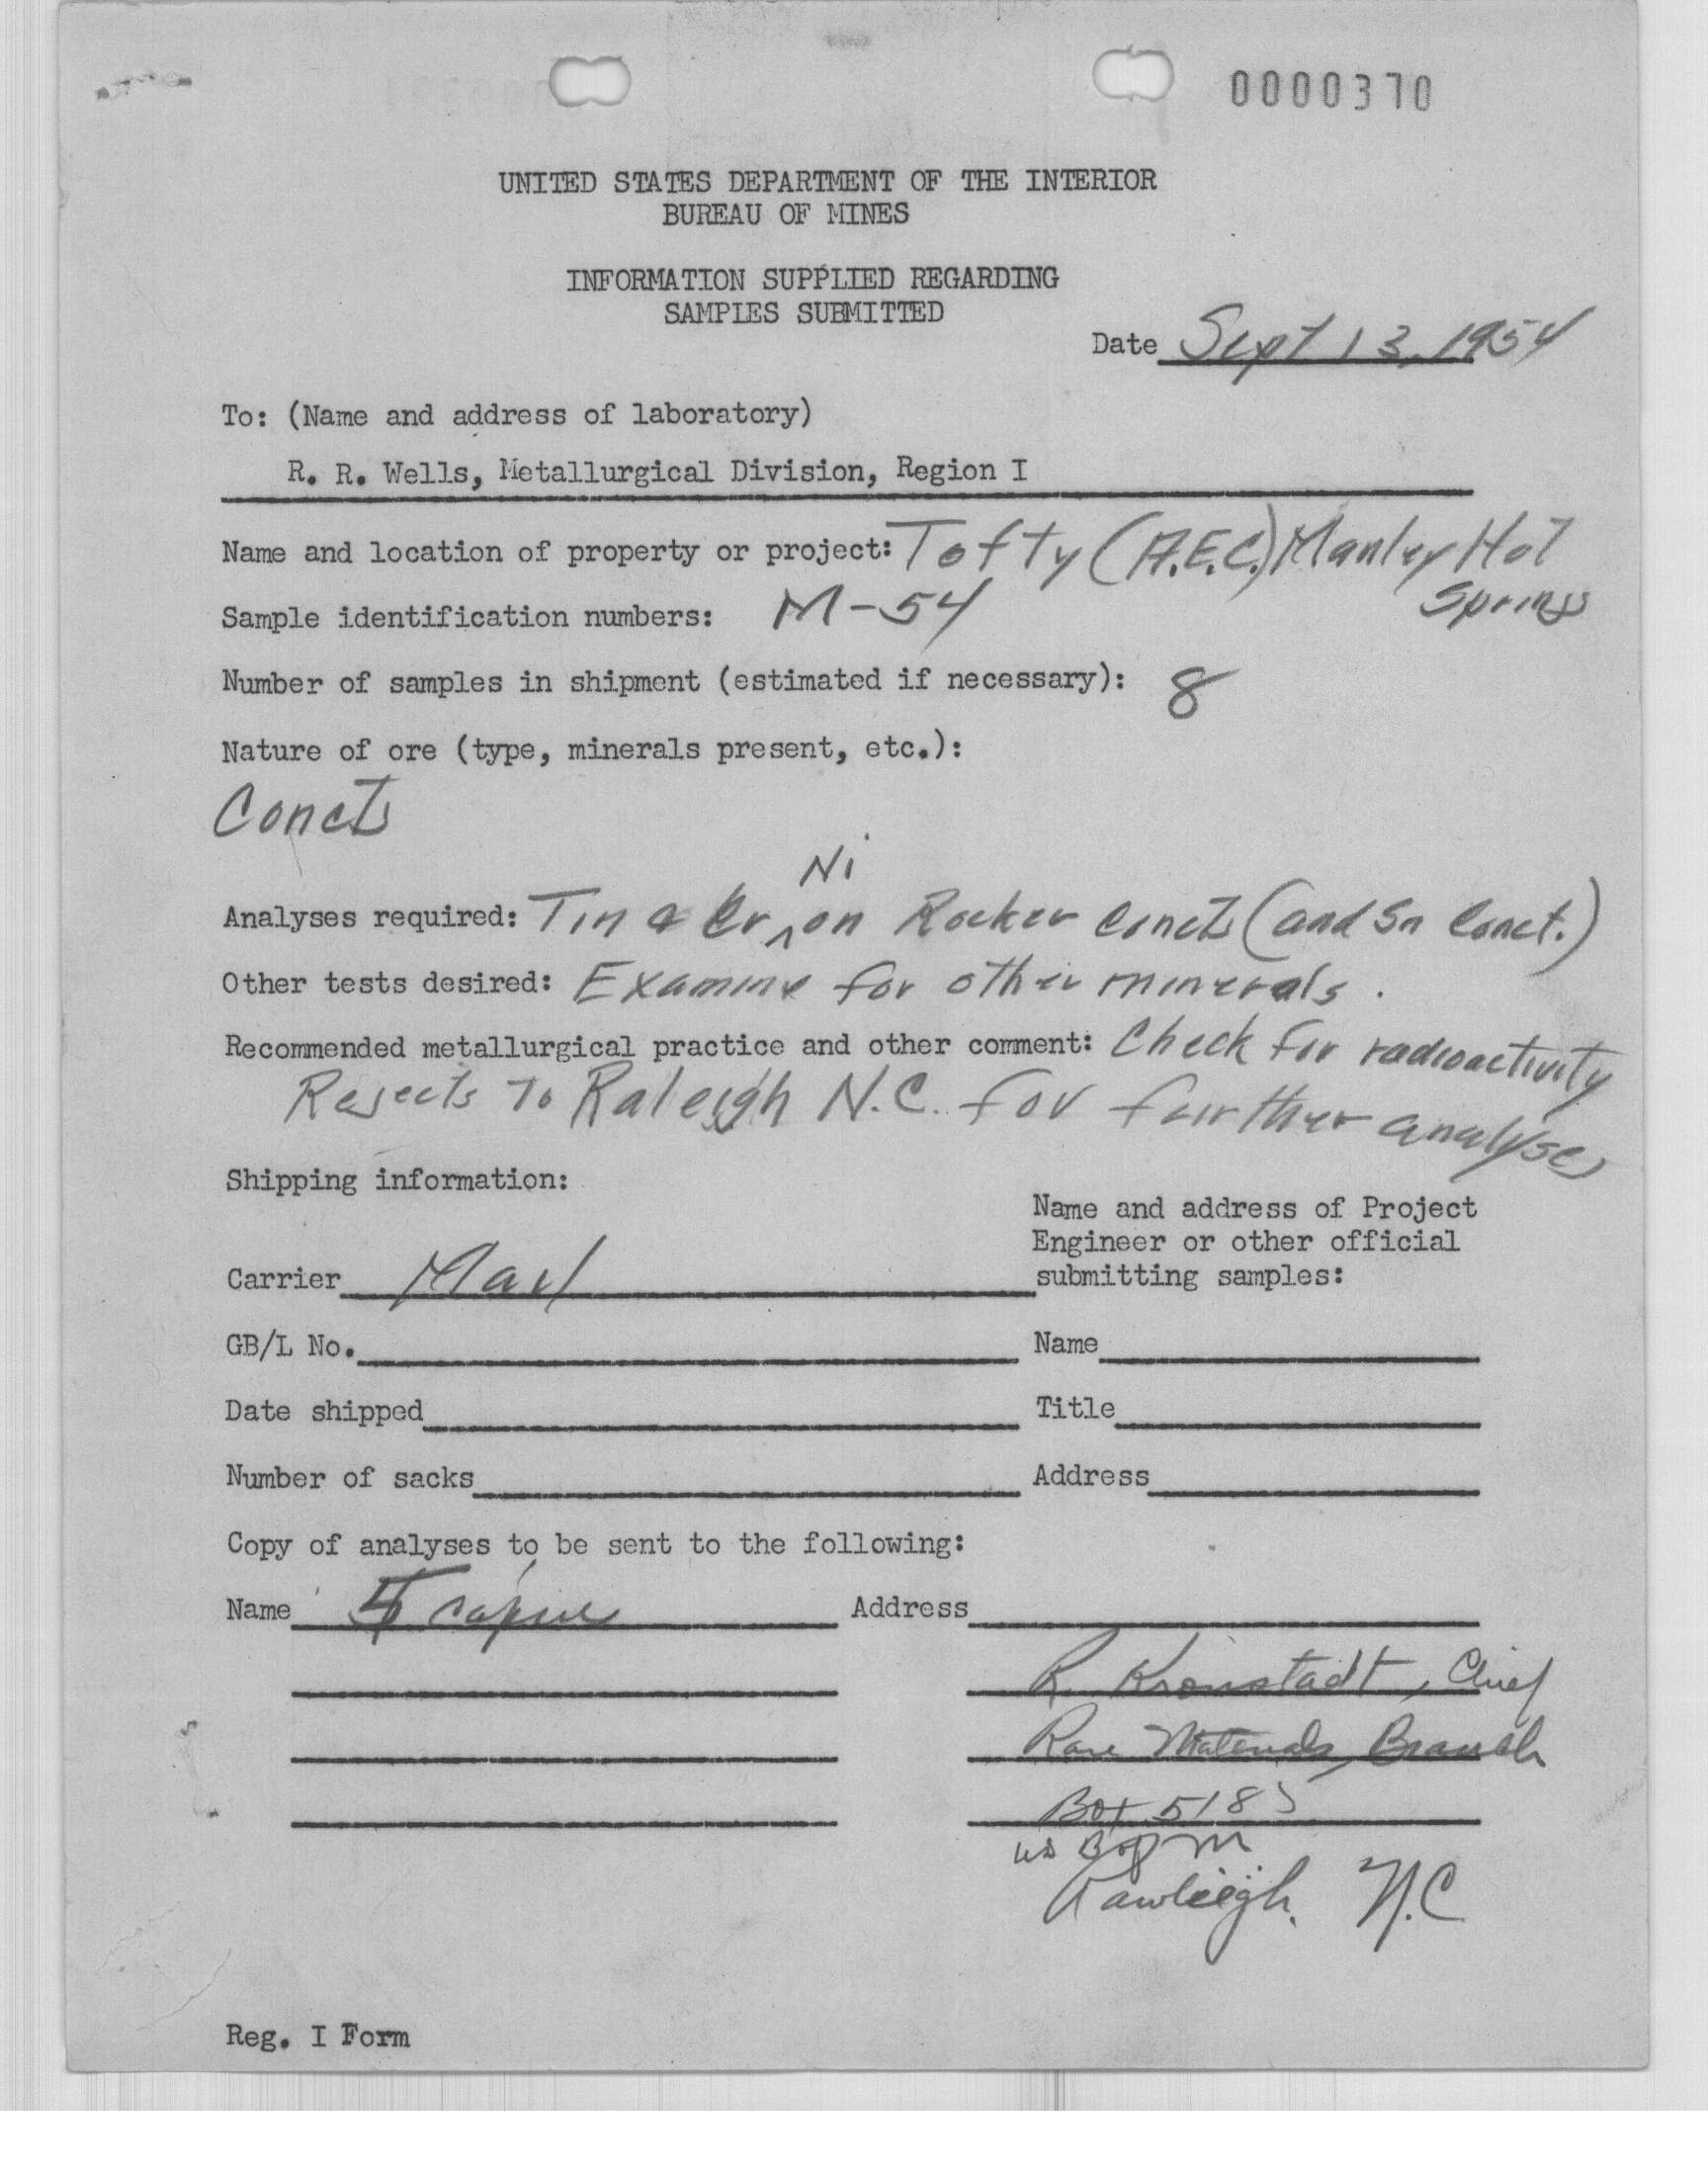 0000370
UNITED STATES DEPARTMENT OF THE INTERIOR
BUREAU OF MINES
INFORMATION SUPPLIED REGARDING
SAMPLES SUBMITTED
Date Sept 13, 1954
To: (Name and address of laboratory)
R. R. Wells, Metallurgical Division, Region I
Name and location of property or project: Tofty (A.E.C.) Manley Hot
Springs
Sample identification numbers: M-54
Number of samples in shipment (estimated if necessary): 8
Nature of ore (type, minerals present, etc.):
Concts
Ni
Analyses required: Tin & Cr ^ on Rocker Concts (and Sn Conct.)
Other tests desired: Examine for other minerals.
Recommended metallurgical practice and other comment: Check for radioactivity
Rejects To Raleigh N.C. for further analyses
Shipping information:
Name and address of Project
Engineer or other official
submitting samples:
Carrier Mail
GB/L No. Name
Date shipped Title
Number of sacks Address
Copy of analyses to be sent to the following:
Name copies Address
R. Kronstadt, Chief
Rare Materials Branch
Box 5185
US B of M
Rawleigh. N.C
Reg. I Form